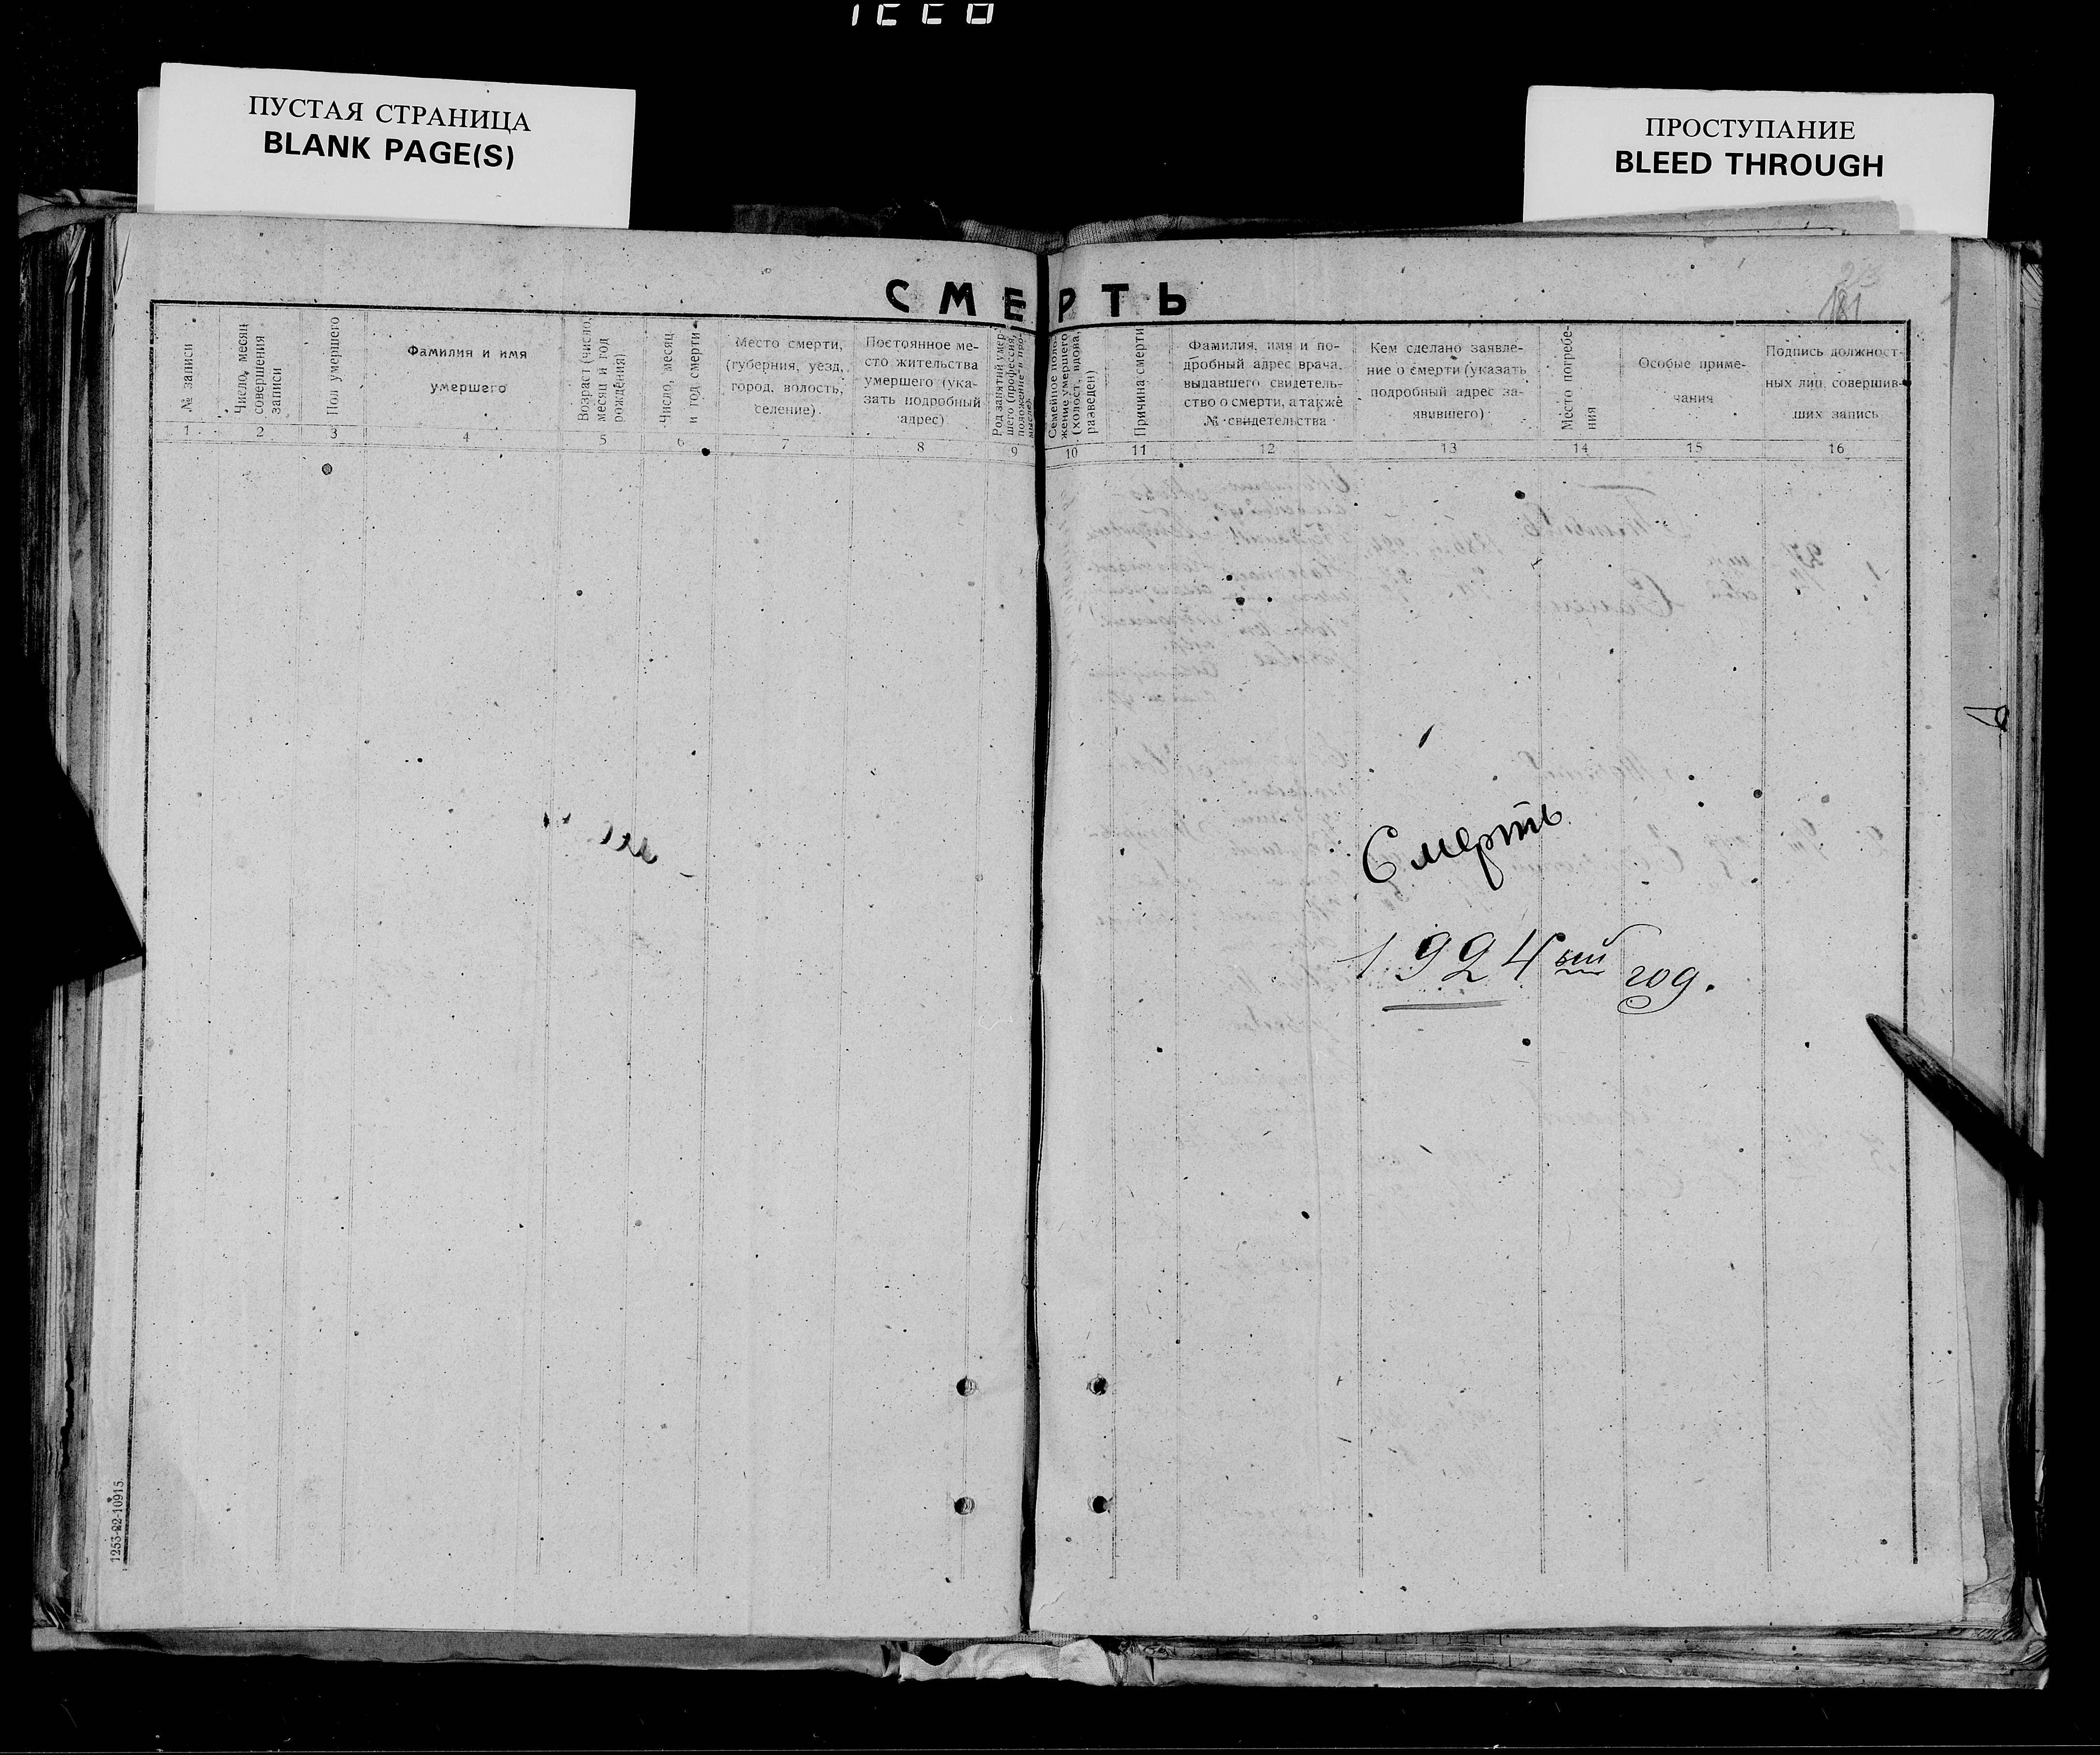 ПУСТАЯ СТРАНИЦА
BLANK PAGE(S)
ПРОСТУПАНИЕ
BLEED THROUGH
181
СМЕРТЬ
№ записи
Число, месяц
совершения
записи
Пол умершего
Фамилия и имя
умершего
Возраст (число,
месяц и год
рождения)
Число, месяц
и год смерти
Место смерти,
(губерния, уезд,
город, волость,
селение).
Постоянное ме-
сто жительства
умершего (ука-
зать подробный
адрес)
Род занятий умер-
шего (профессия,
положение в про-
мысле).
Семейное поло-
жение умершего
(холост, вдова,
разведен)
Причина смерти
Фамилия, имя и по-
дробный адрес врача,
выдавшего свидетель-
ство о смерти, а также
№ свидетельства
Кем сделано заявле-
ние о смерти (указать
подробный адрес за-
явившего)
Место погребе-
ния
Особые приме-
чания
Подпись должност-
ных лиц, совершив-
ших запись
1 2 3 4 5 6 7 8 9 10 11 12 13 14 15 16
Смерть
1924ый год.
1253-22-10915.